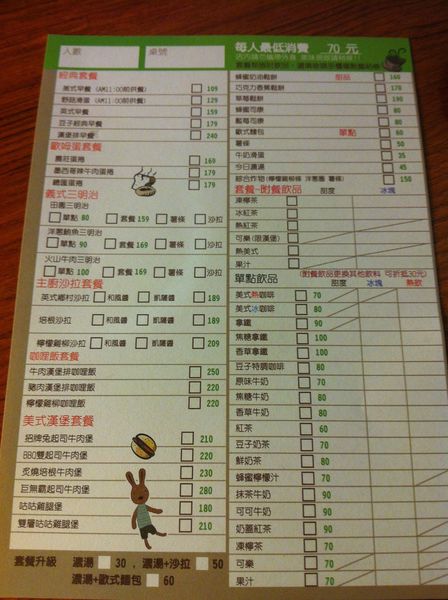 人數
桌號
經典套餐
美式早餐 (AM11:00前供餐) 109
野路滑蛋 (AM11:00前供餐) 129
英式早餐 159
豆子經典早餐 179
漢堡排早餐 240
歐姆蛋套餐
農莊蛋捲 169
墨西哥辣牛肉蛋捲 179
總匯蛋捲 179
義式三明治
田園三明治
單點 80 套餐 159 薯條 沙拉
洋蔥鮪魚三明治
單點 90 套餐 169 薯條 沙拉
火山牛肉三明治
單點 100 套餐 169 薯條 沙拉
主廚沙拉套餐
英式鄉村沙拉 和風醬 凱薩醬 189
培根沙拉 和風醬 凱薩醬 189
檸檬雞柳沙拉 和風醬 凱薩醬 209
咖哩飯套餐
牛肉漢堡排咖哩飯 250
豬肉漢堡排咖哩飯 220
檸檬雞柳咖哩飯 220
美式漢堡套餐
招牌兔起司牛肉堡 210
BBQ雙起司牛肉堡 220
炙燒培根牛肉堡 230
巨無霸起司牛肉堡 280
咕咕雞腿堡 180
雙層咕咕雞腿堡 210
套餐升級 濃湯 30 , 濃湯+沙拉 50
濃湯+歐式麵包 60
每人最低消費 70 元
蜂蜜奶油鬆餅 甜品 160
巧克力香蕉鬆餅 170
草莓鬆餅 190
蜂蜜司康 80
藍莓司康 80
歐式麵包 單點 60
薯條 50
牛奶滑蛋 35
今日濃湯 45
綜合炸物 (檸檬雞柳條 洋蔥圈 薯條) 150
套餐-附餐飲品 甜度 冰塊
凍檸茶
冰紅茶
熱紅茶
可樂(限漢堡)
熱美式
果汁
單點飲品 (附餐飲品更換其他飲料 可折抵30元)
甜度 冰塊 熱飲
美式熱咖啡 70
美式冰咖啡 80
拿鐵 90
焦糖拿鐵 100
香草拿鐵 100
豆子特調咖啡 80
原味牛奶 70
焦糖牛奶 80
香草牛奶 80
紅茶 60
豆子奶茶 70
鮮奶茶 80
蜂蜜檸檬汁 80
抹茶牛奶 90
可可牛奶 90
奶蓋紅茶 90
凍檸茶 90
可樂 70
果汁 70